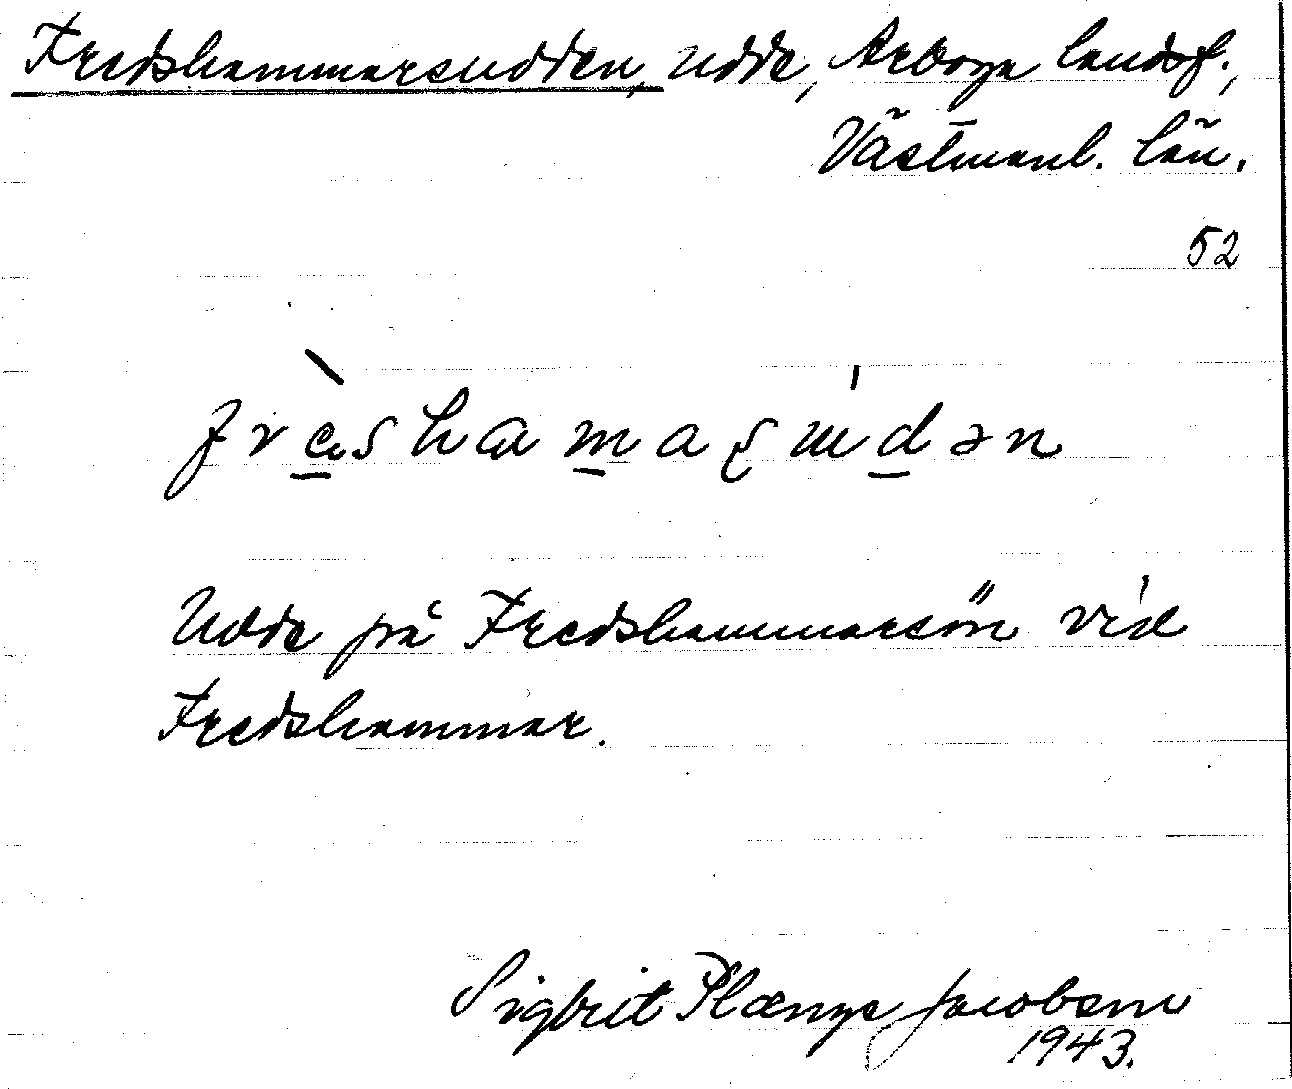 Fredshammarsudden, udde, Arboga landsf.,
Västmanl. län.
52
Udde på Fredshammarsön vid
Fredshammar.
Sigbrit Plænge Jacobson
1943.